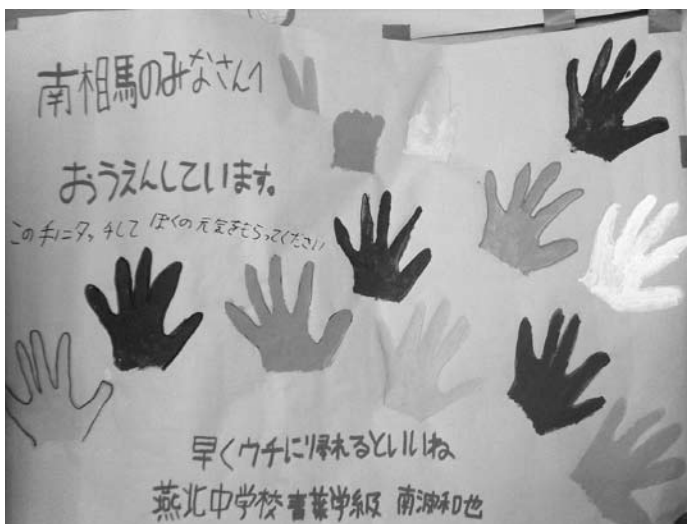 南相馬のみなさんへ
おうえんしています。
この手にタッチして ぼくの元気をもらってください
早くウチに帰れるといいね
燕北中学校 青葉学級 南波和也